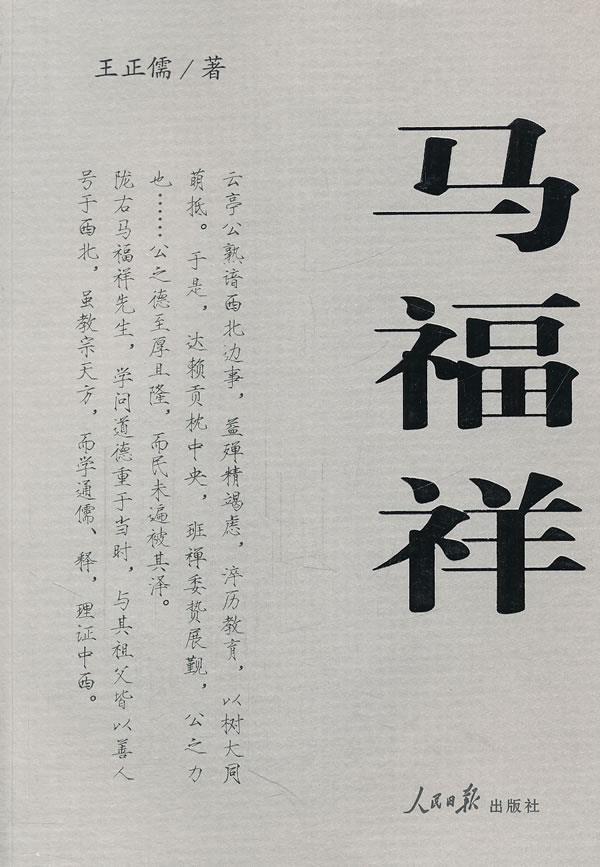 王正儒/著
马福祥
云亭公熟谙西北边事，益殚精竭虑，淬历教育，以树大同
萌抵。于是，达赖贡枕中央，班禅委贽展觐，公之力
也……公之德至厚且隆，而民未遍被其泽。
陇右马福祥先生，学问道德重于当时，与其祖父皆以善人
号于西北，虽教宗天方，而学通儒、释，理证中西。
人民日报出版社